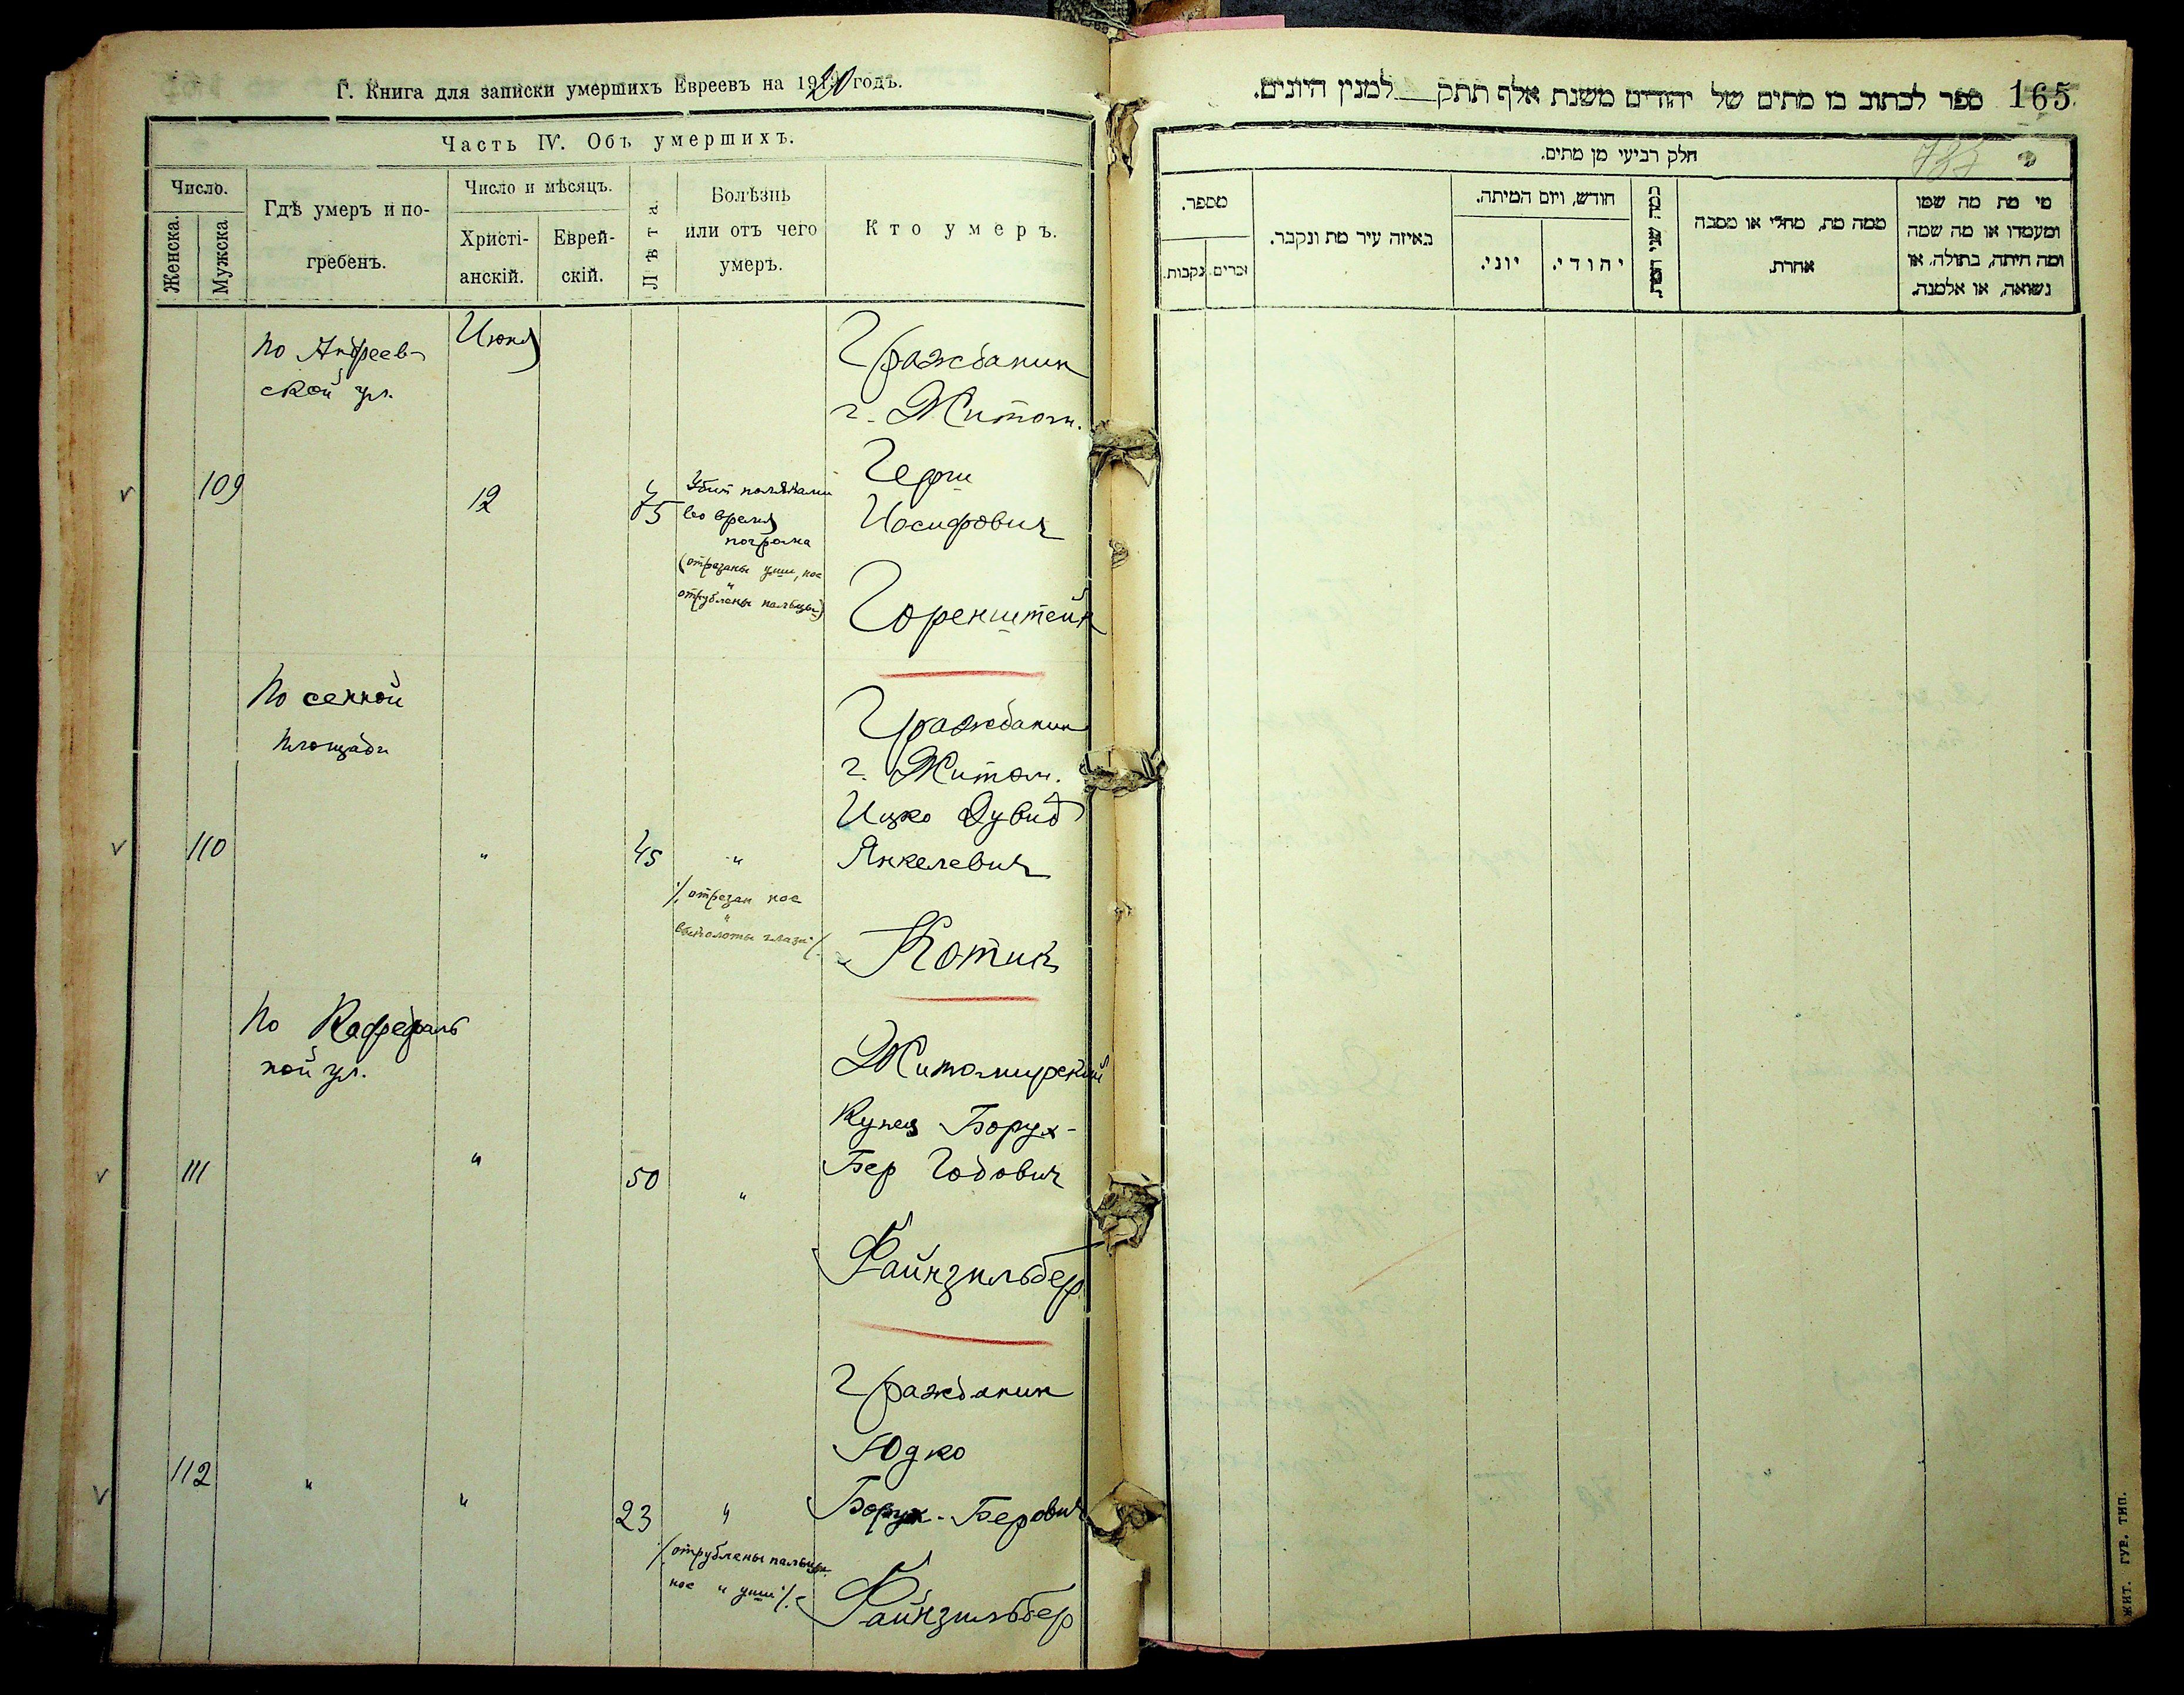 Г. Книга для записки умершихъ Евреевъ на 1920 годъ.
Часть IV. Объ умершихъ.
Число.
Женска.
Мужска
Гдѣ умеръ и по-
гребенъ.
Число и мѣсяцъ.
Христі-
анскій.
Еврей-
скій.
Лѣта.
Болѣзнь
или отъ чего
умеръ.
Кто умеръ.
по Андреев-
ской ул.
Июня
109
12
75
Убит поляками
во время
погрома
(отрезаны уши, нос
и
отрублены пальцы)
Гражданин
г. Житом.
Герш
Иосифович
Горенштейн
По сенной
площади
110
"
45
"
/отрезан нос
и
выколоты глаза/.
Гражданин
г. Житом.
Ицко Дувид
Янкелевич
Котик
По Кафедраль
ной ул.
111
"
50
"
Житомирский
Купец Борух-
Бер Годович
Файнзильбер
112
"
"
23
"
/отрублены пальцы
нос и уши/.
Гражданин
Юдко
Борух-Берович
Файнзильбер
ספר לכתוב בו מתים של יהודים משנת אלף תתק___למנין היונים. 165
חלק רביעי מן מתים.
מספר.
נקבות.
זכרים.
באיזה עיר מת ונקבר.
חודש, ויום המיתה.
יוני.
יהודי.
כמה שני המת
ממה מת, מחלי או מסבה
אחרת.
מי מת מה שמו
ומעמדו או מה שמה
ומה היתה, בתולה, או
נשואה, או אלמנה.
ЖИТ. ГУБ. ТИП.